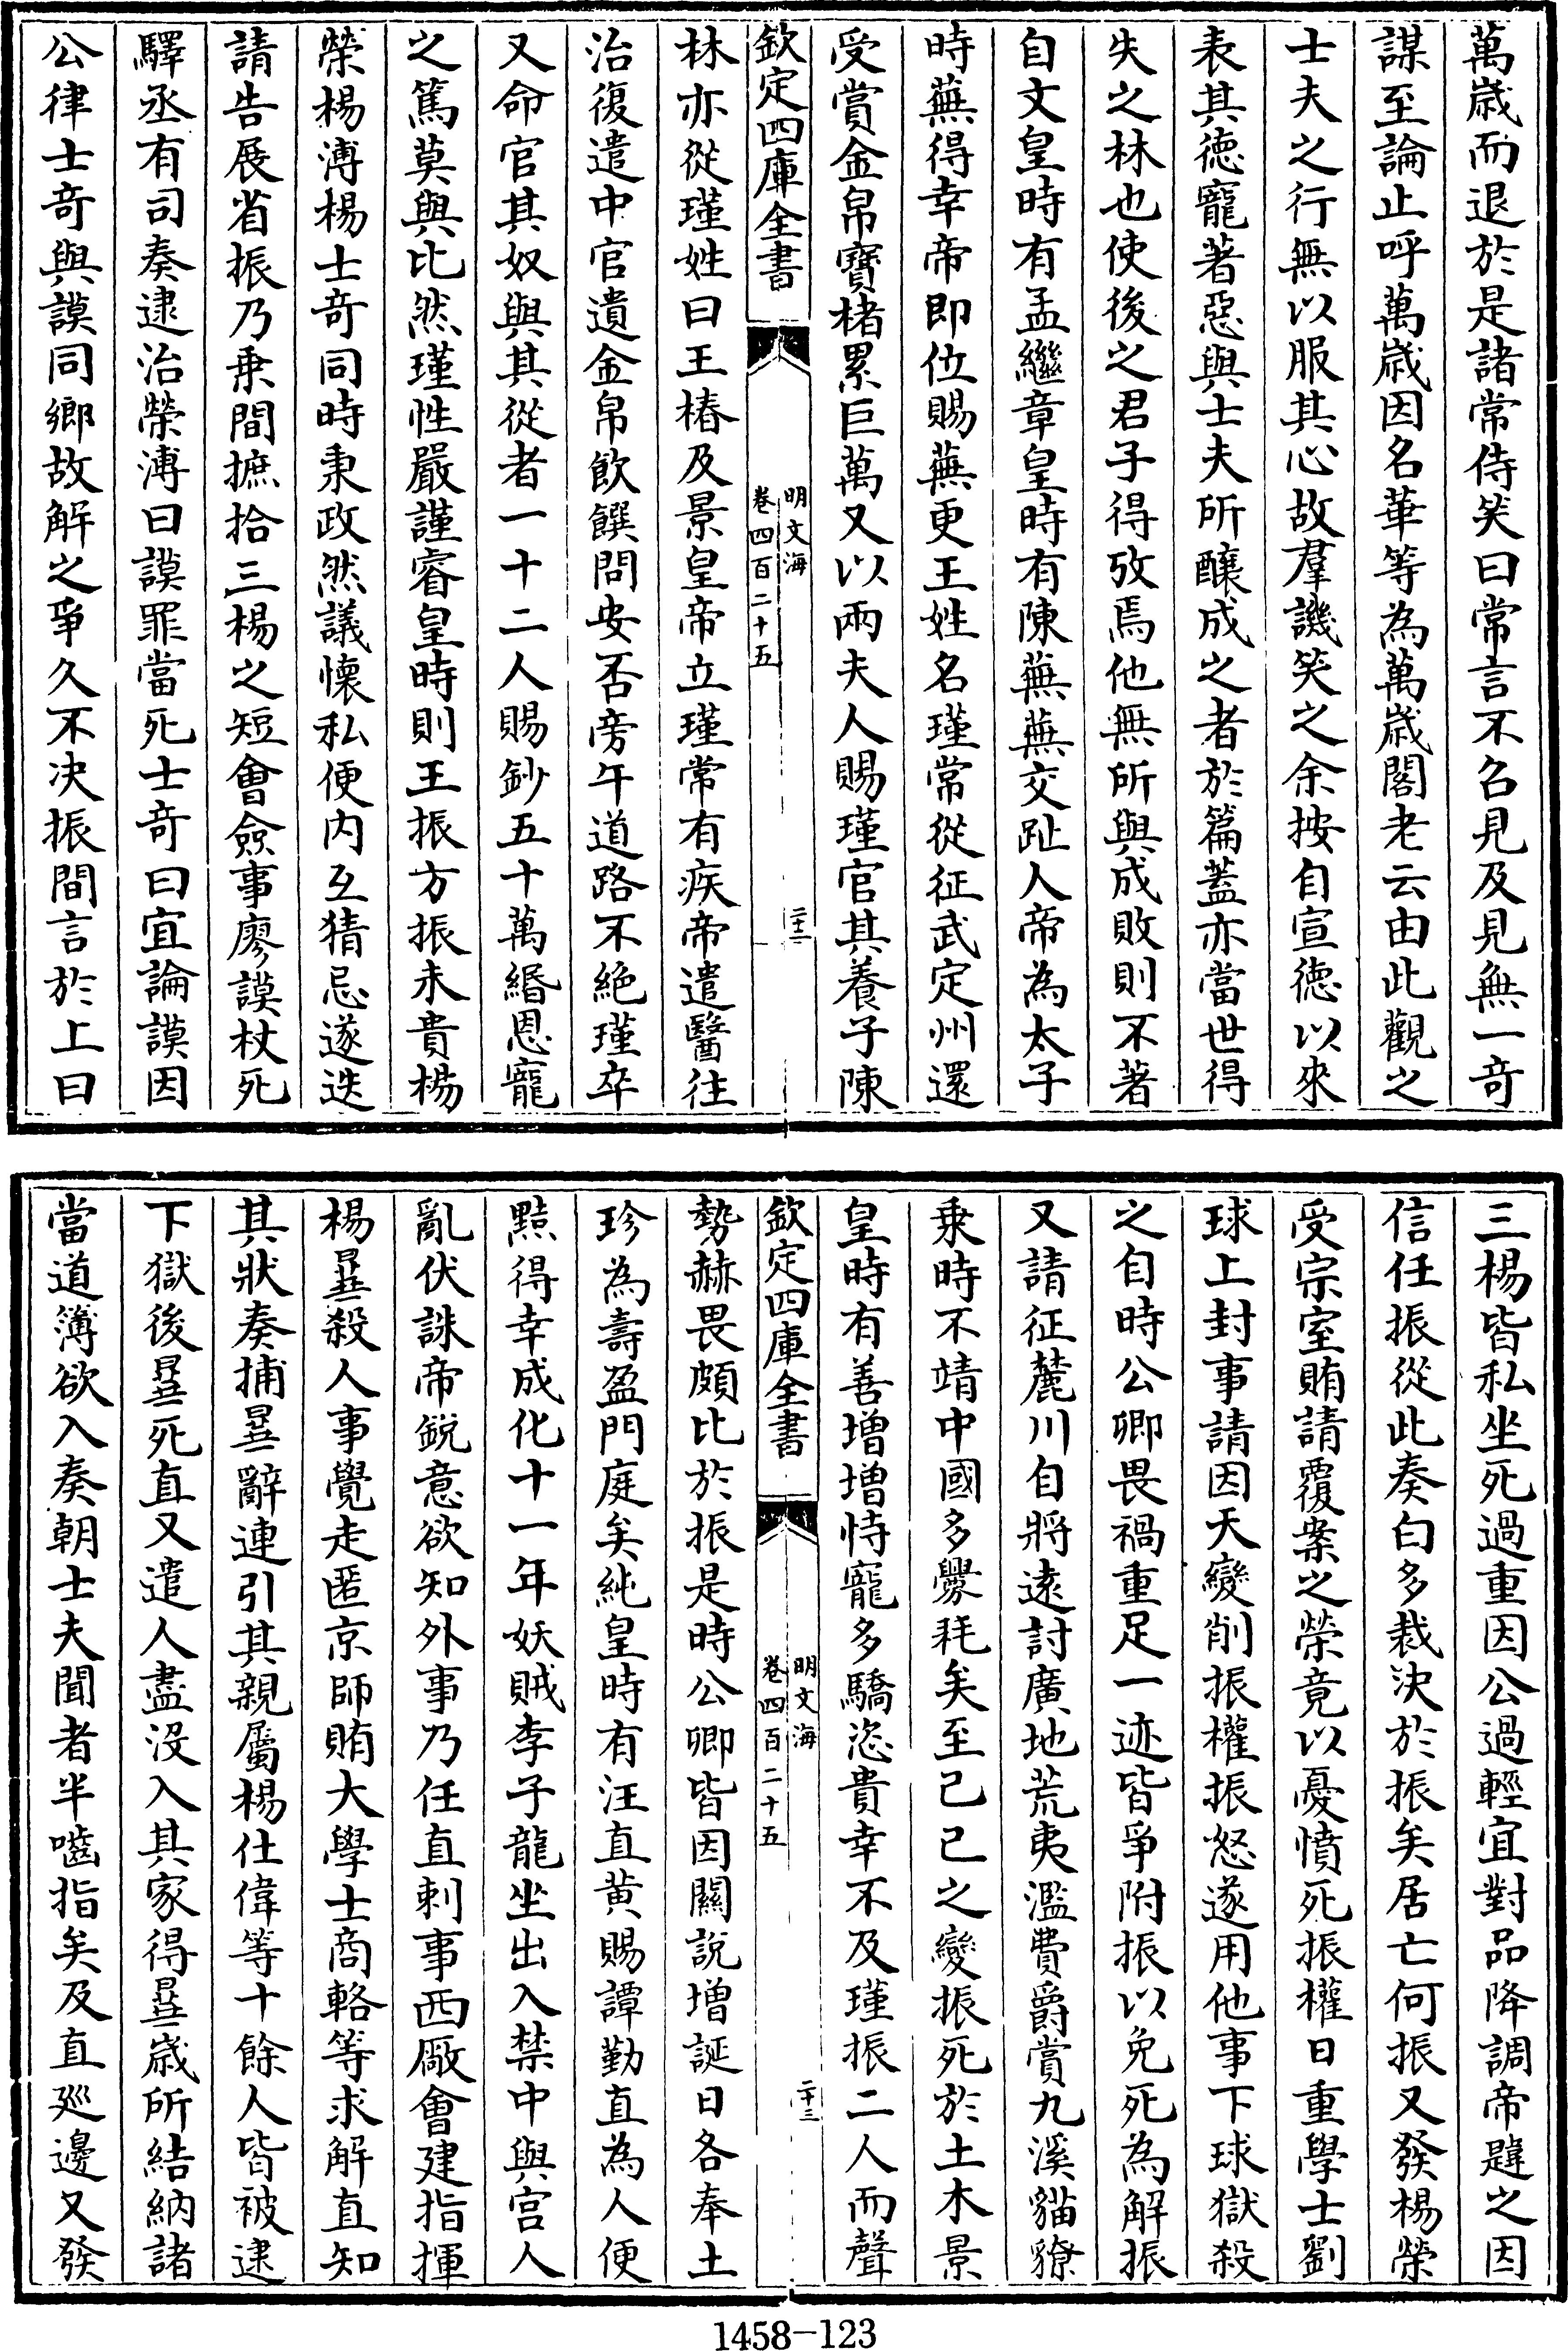 萬嵗而退於是諸常侍笑曰常言不名見及見無一竒
謀至論止呼萬嵗因名華等為萬嵗閣老云由此觀之
士夫之行無以服其心故羣譏笑之余按自宣徳以來
表其徳寵著惡與士夫所釀成之者於篇蓋亦當世得
失之林也使後之君子得攷焉他無所與成敗則不著
自文皇時有孟繼章皇時有陳蕪蕪交趾人帝為太子
時蕪得幸帝即位賜蕪更王姓名瑾常從征武定州還
受賞金帛寳楮累巨萬又以兩夫人賜瑾官其養子陳
欽定四庫全書
明文海
卷四百二十五
二十二
林亦從瑾姓曰王椿及景皇帝立瑾常有疾帝遣醫往
治復遣中官遺金帛飲饌問安否旁午道路不絶瑾卒
又命官其奴與其從者一十二人賜鈔五十萬緡恩寵
之篤莫與比然瑾性嚴謹睿皇時則王振方振未貴楊
榮楊溥楊士竒同時秉政然議懐私便内互猜忌遂迭
請告展省振乃乗間摭拾三楊之短會僉事廖謨杖死
驛丞有司奏逮治榮溥曰謨罪當死士竒曰宜論謨因
公律士竒與謨同鄉故解之爭久不決振間言於上曰
三楊皆私坐死過重因公過輕宜對品降調帝韙之因
信任振從此奏白多裁決於振矣居亡何振又發楊榮
受宗室賄請覆案之榮竟以憂憤死振權日重學士劉
球上封事請因天變削振權振怒遂用他事下球獄殺
之自時公卿畏禍重足一迹皆爭附振以免死為解振
又請征麓川自將遠討廣地荒夷濫費爵賞九溪貓獠
乗時不靖中國多釁耗矣至己巳之變振死於土木景
皇時有善増増恃寵多驕恣貴幸不及瑾振二人而聲
欽定四庫全書
明文海
卷四百二十五
二十三
勢赫畏頗比於振是時公卿皆因關說増誕日各奉土
珍為壽盈門庭矣純皇時有汪直黄賜譚勤直為人便
黠得幸成化十一年妖賊李子龍坐出入禁中與宫人
亂伏誅帝鋭意欲知外事乃任直刺事西厰會建指揮
楊㬪殺人事覺走匿京師賄大學士商輅等求解直知
其狀奏捕㬪辭連引其親屬楊仕偉等十餘人皆被逮
下獄後㬪死直又遣人盡沒入其家得㬪嵗所結納諸
當道簿欲入奏朝士夫聞者半囓指矣及直廵邊又發
1458-123